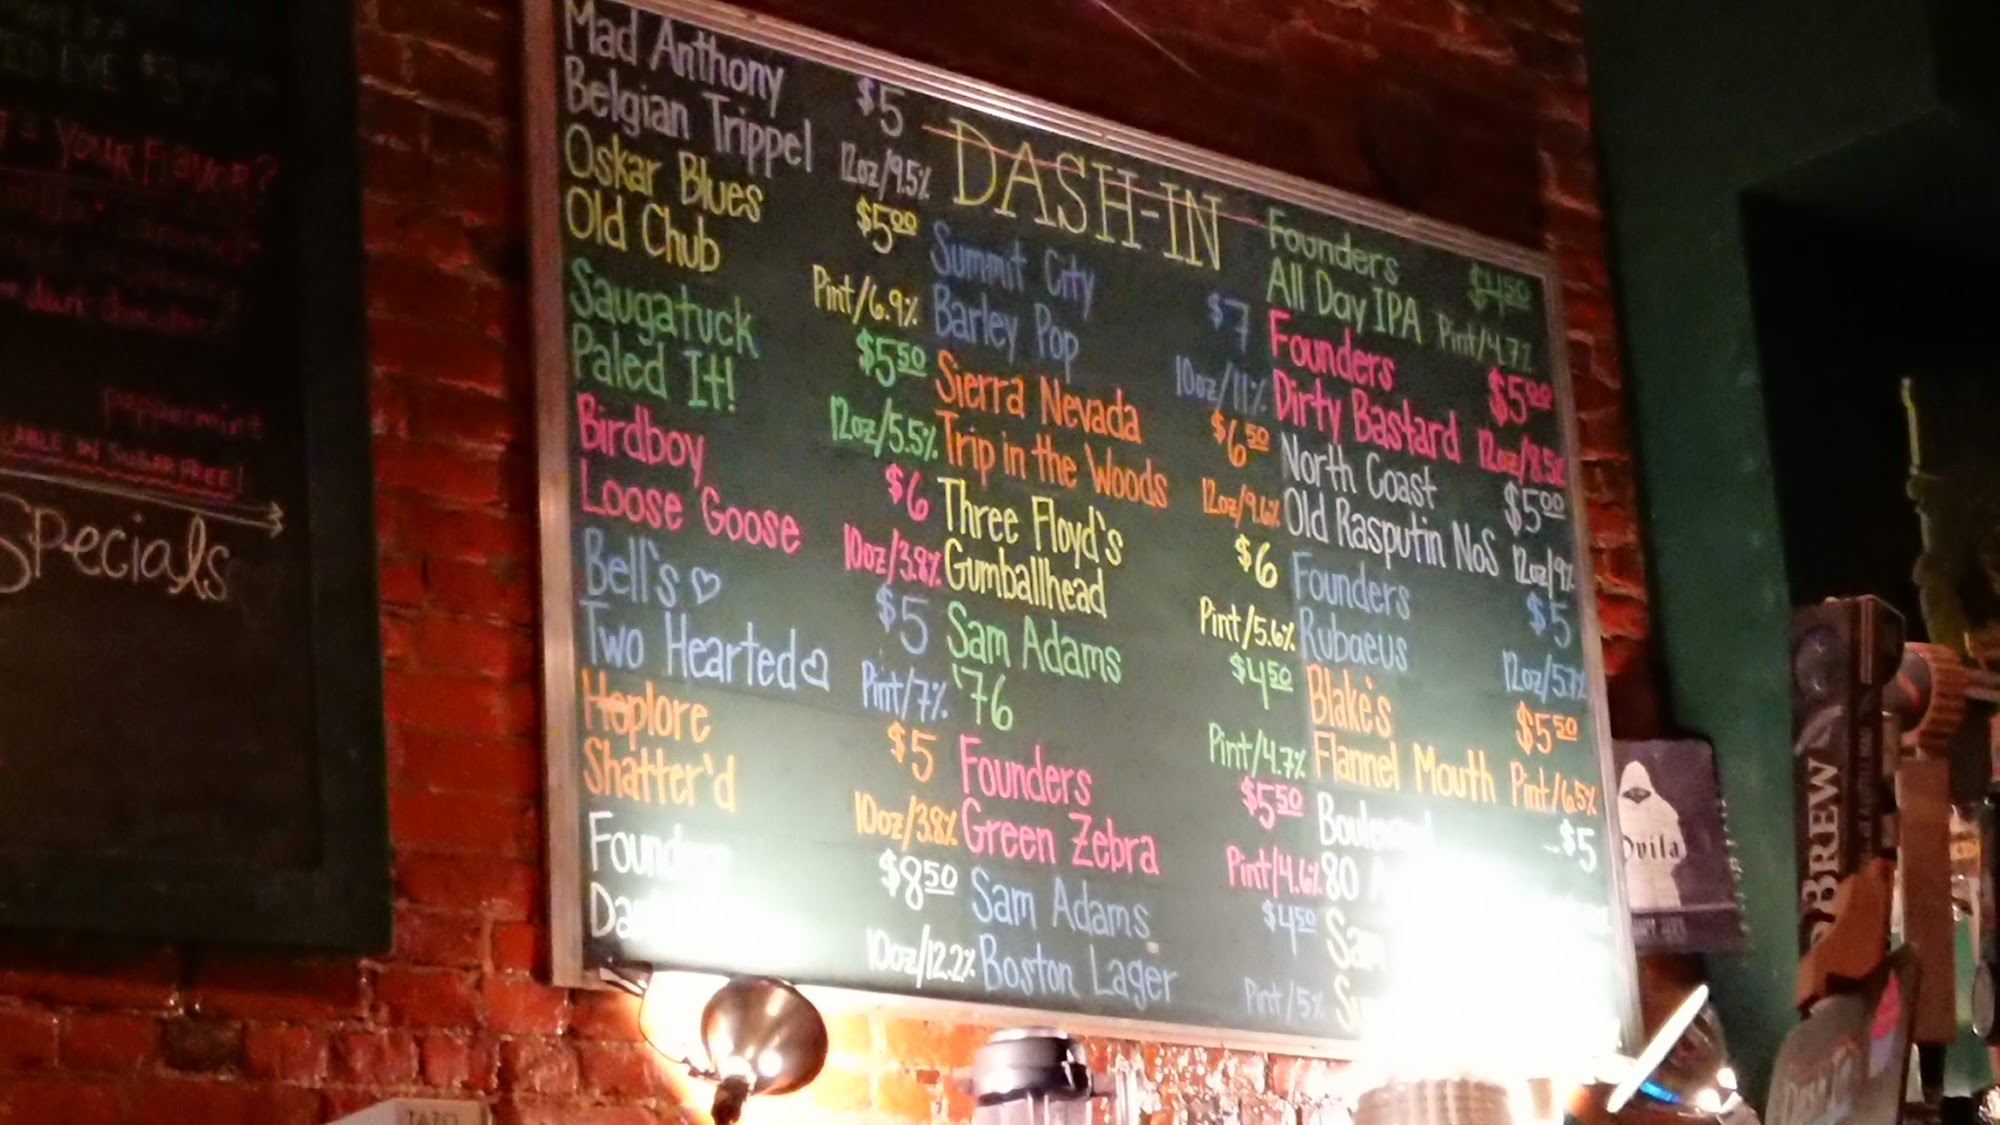 YOUR FLAVOR?
dark chocolate
peppermint
ABLE IN SUGAR FREE!
Specials
Mad Anthony $5
Belgian Trippel 12oz/9.5%
Oskar Blues $500
Old Chub Pint/6.9%
Saugatuck $550
Paled It! 12oz/5.5%
Birdboy $6
Loose Goose 10oz/3.8%
Bell's ♡ $5
Two Hearted ♡ Pint/7%
Hoplore $5
Shatter'd 10oz/3.8%
Founders $850
10oz/12.2%
DASH-IN
Summit City $7
Barley Pop 10oz/11%
Sierra Nevada $650
Trip in the Woods 12oz/9.6%
Three Floyd's $6
Gumballhead Pint/5.6%
Sam Adams $450
'76 Pint/4.7%
Founders $550
Green Zebra Pint/4.6%
Sam Adams $450
Boston Lager Pint/5%
Founders $450
All Day IPA Pint/4.7%
Founders $500
Dirty Bastard 12oz/8.5%
North Coast $500
Old Rasputin NoS 12oz/9%
Founders $5
Rubaeus 12oz/5.7%
Blake's $550
Flannel Mouth Pint/6.5%
$5
80
Ovila
BREW